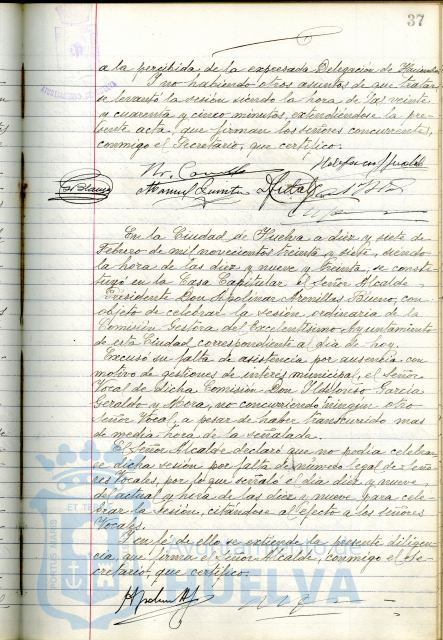 37
a la percibida de la expresada Delegación de Hacienda.
Y no habiendo otros asuntos de que tratar
se levantó la sesión siendo la hora de las veinte
y cuarenta y cinco minutos, extendiéndose la pre-
sente acta, que firman los señores concurrentes,
conmigo el Secretario, que certifico.
Manuel
En la Ciudad de Huelva a diez y siete de
Febrero de mil novecientos treinta y siete, siendo
la hora de las diez y nueve y treinta, se consti-
tuyó en la Casa Capitular el Señor Alcalde
Presidente Don Apolinar Arenillas Bueno, con
objeto de celebrar la sesión ordinaria de la
Comisión Gestora del Excelentísimo Ayuntamiento
de esta Ciudad correspondiente al día de hoy.
Excusó su falta de asistencia por ausencia con
motivo de gestiones de interés municipal, el señor
Vocal de dicha Comisión Don Ildefonso García
Geraldo y Mora, no concurriendo ningún otro
Señor Vocal a pesar de haber transcurrido mas
de media hora de la señalada.
El Señor Alcalde declaró que no podía celebrar-
se dicha sesión por falta de número legal de Seño-
res Vocales, por lo que señaló el día diez y nueve
del actual y hora de las diez y nueve para cele-
brar la sesión, citándose al efecto a los señores
Vocales.
Y en fé de ello se extiende la presente diligen-
cia, que firma el Señor Alcalde, conmigo el Se-
cretario, que certifico.
PORTUS MARIS ET TERRAE
Ayuntamiento de
HUELVA